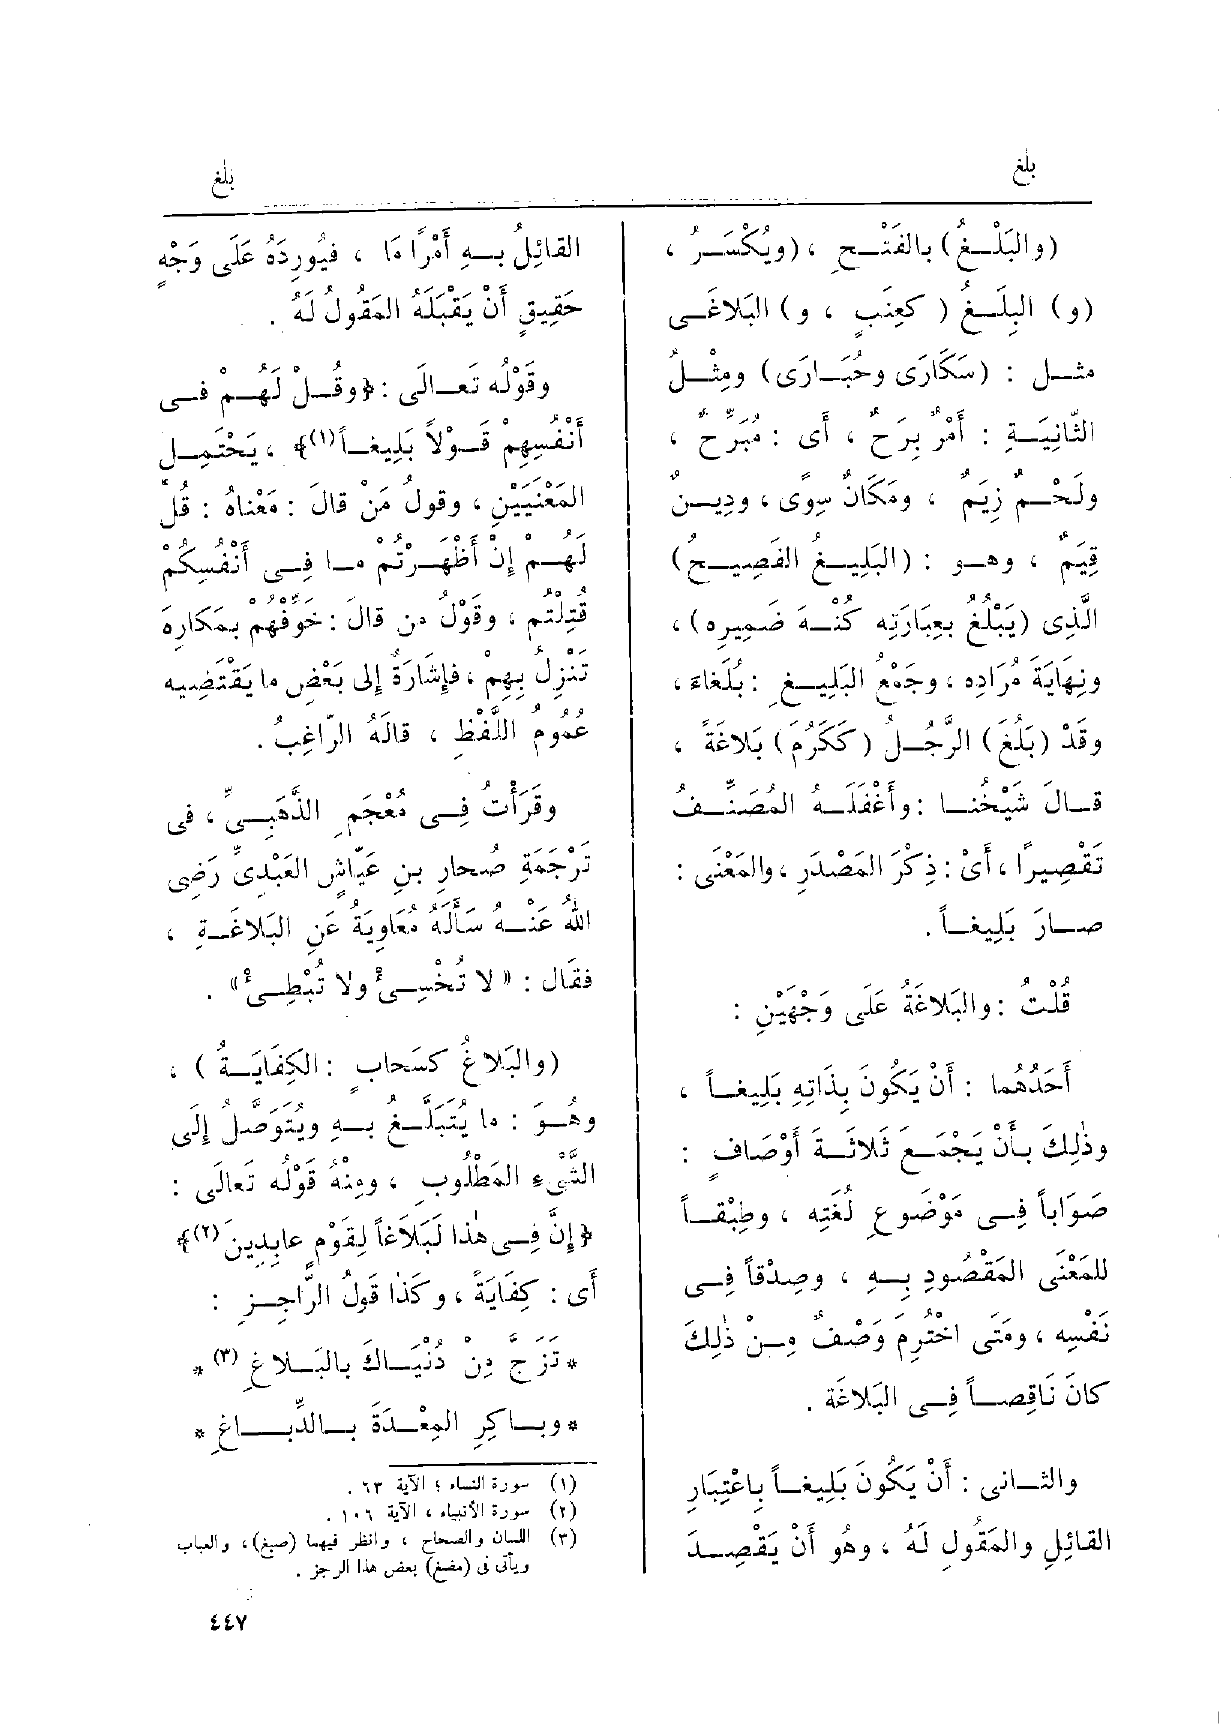 بلغ
بلغ
(والبَلْـغُ) بالفَتْـحِ ، (ويُكْسَـرُ ،
(و) البِلَـغُ ( كعِنَبٍ ، و) البَلاغَـى
مثـل : (سَكَارَى وحُبَـارَى) ومِثْـلُ
الثّانِيَـةِ : أَمْرٌ بِرَحٌ ، أَى : مُبَرِّحٌ ،
ولَحْـمٌ زِيَمٌ ، ومَكَانٌ سِوًى ، ودِيـنٌ
قِيَمٌ ، وهـو : (البَلِيـغُ الفَصِيـح)
الَّذِى (يَبْلُغُ بعِبَارَتِه كُنْـهَ ضَمِيرِه) ،
ونِهَايَةَ مُرَادِه ، وجَمْعُ البَلِيـغِ : بُلَغاءَ ،
وقَدْ (بَلُغَ) الرَّجُـلُ (كَكَرُمَ) بَلاغَةً ،
قـالَ شَيْخُنـا : وأَغْفَلَـهُ المُصَنِّـفُ
تَقْصِيرًا ، أَىْ : ذِكْرَ المَصْدَرِ ، والمَعْنَى :
صـارَ بَلِيغـاً .
قُلْتُ : والبَلاغَةُ عَلَى وَجْهَيْنِ :
أَحَدُهُما : أَنْ يَكُونَ بِذَاتِهِ بَلِيغـاً ،
وذٰلِكَ بـأَنْ يَجْمَـعَ ثَلاثَـةَ أَوْصَافٍ :
صَوَاباً فِـى مَوْضُوعِ لُغَتِه ، وطِبْقـاً
للمَعْنَى المَقْصُودِ بِـهِ ، وصِدْقاً فِـى
نَفْسِه ، ومَتَى اخْتُرِمَ وَصْفٌ مِـنْ ذٰلِكَ
كانَ نَاقِصـاً فِـى البَلاغَة .
والثـانى : أَنْ يَكُونَ بَلِيغـاً بِاعْتِبَارِ
القائِلِ والمَقُولِ لَهُ ، وهُو أَنْ يَقْصِـدَ
القائِلُ بـهِ أَمْرًا مَا ، فيُورِدَهُ عَلَى وَجْهٍ
حَقِيقٍ أَنْ يَقْبَلَهُ المَقُولُ لَهُ .
وقَوْلُه تَعـالَى : ﴿وقُـلْ لَهُـمْ فـى
أَنْفُسِهِمْ قَـوْلاً بَلِيغـاً(١)﴾ ، يَحْتَمِـل
المَعْنَيَيْنِ ، وقولُ مَنْ قالَ : مَعْناهُ : قُلْ
لَهُـمْ إِنْ أَظْهَـرْتُم مـا فِـى أَنْفُسِكُمْ
قُتِلْتُم ، وقَوْلُ من قالَ : خَوِّفْهُم بمَكارِهَ
تَنْزِلُ بِهِمْ ، فإِشَارَةٌ إلى بَعْضِ ما يَقْتَضِيه
عُمُومُ اللَّفْظِ ، قالَهُ الرّاغِبُ .
وقَرَأْتُ فِـى مُعْجَمِ الذَّهَبِـىِّ ، فى
تَرْجَمَةِ صُحارِ بنِ عَيّاشٍ العَبْدِىِّ رَضِىَ
اللهُ عَنْـهُ سَأَلَهُ مُعَاوِيَةُ عَنِ البَلاغَـةِ ،
فقَال : « لا تُخْـطِـئُ ولا تُبْطِـئُ » .
(والبَلاغُ كسَحابٍ : الكِفَايَـةُ) ،
وهُـوَ : ما يُتَبَلَّـغُ بـهِ ويُتَوَصَّلُ إِلَى
الشَّىءِ المَطْلُوبِ ، ومِنْهُ قَوْلُه تَعالَى :
﴿إِنَّ فِـى هٰذا لَبَلاغاً لِقَوْمٍ عابِدِينَ(٢)﴾
أَى : كِفَايَةً ، وكَذا قَولُ الرَّاجِـزِ :
* تَزَجَّ مِنْ دُنْيَـاكَ بالبَـلاغِ (٣) *
* وبـاكِرِ المِعْـدَةَ بـالدِّبـاغِ *
(١) سورة النساء ، الآية ٦٣ .
(٢) سورة الأنبياء ، الآية ١٠٦ .
(٣) اللسان والصحاح ، وانظر فيهما (صبغ) ، والعباب
ويأتى فى (مضغ) بعض هذا الرجز .
٤٤٧